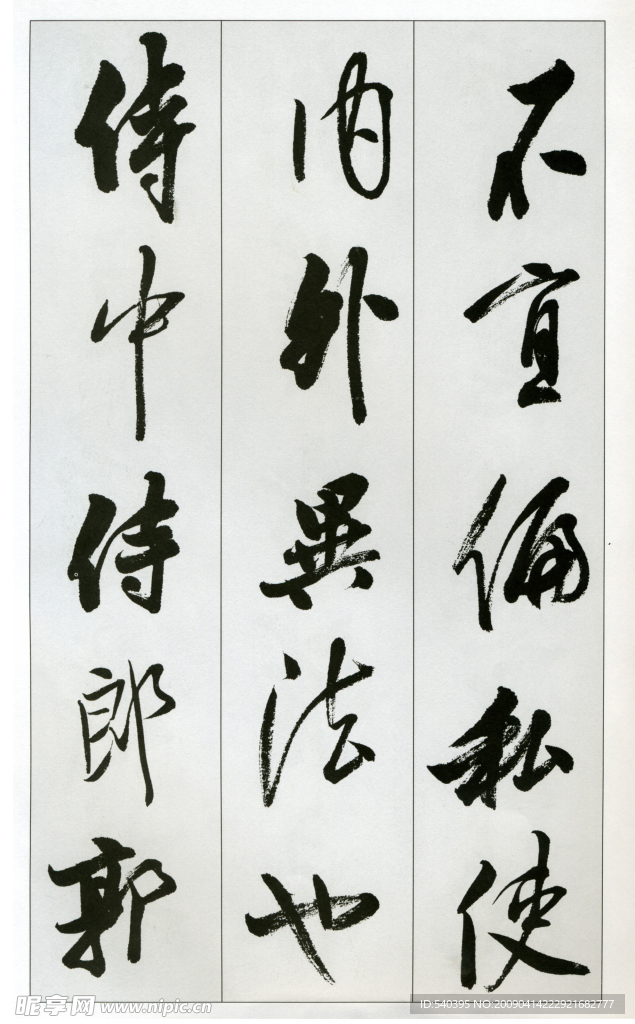 不宜偏私使
内外異法也
侍中侍郎郭
昵享网 www.nipic.cn
ID:540395 NO:20090414222921682777